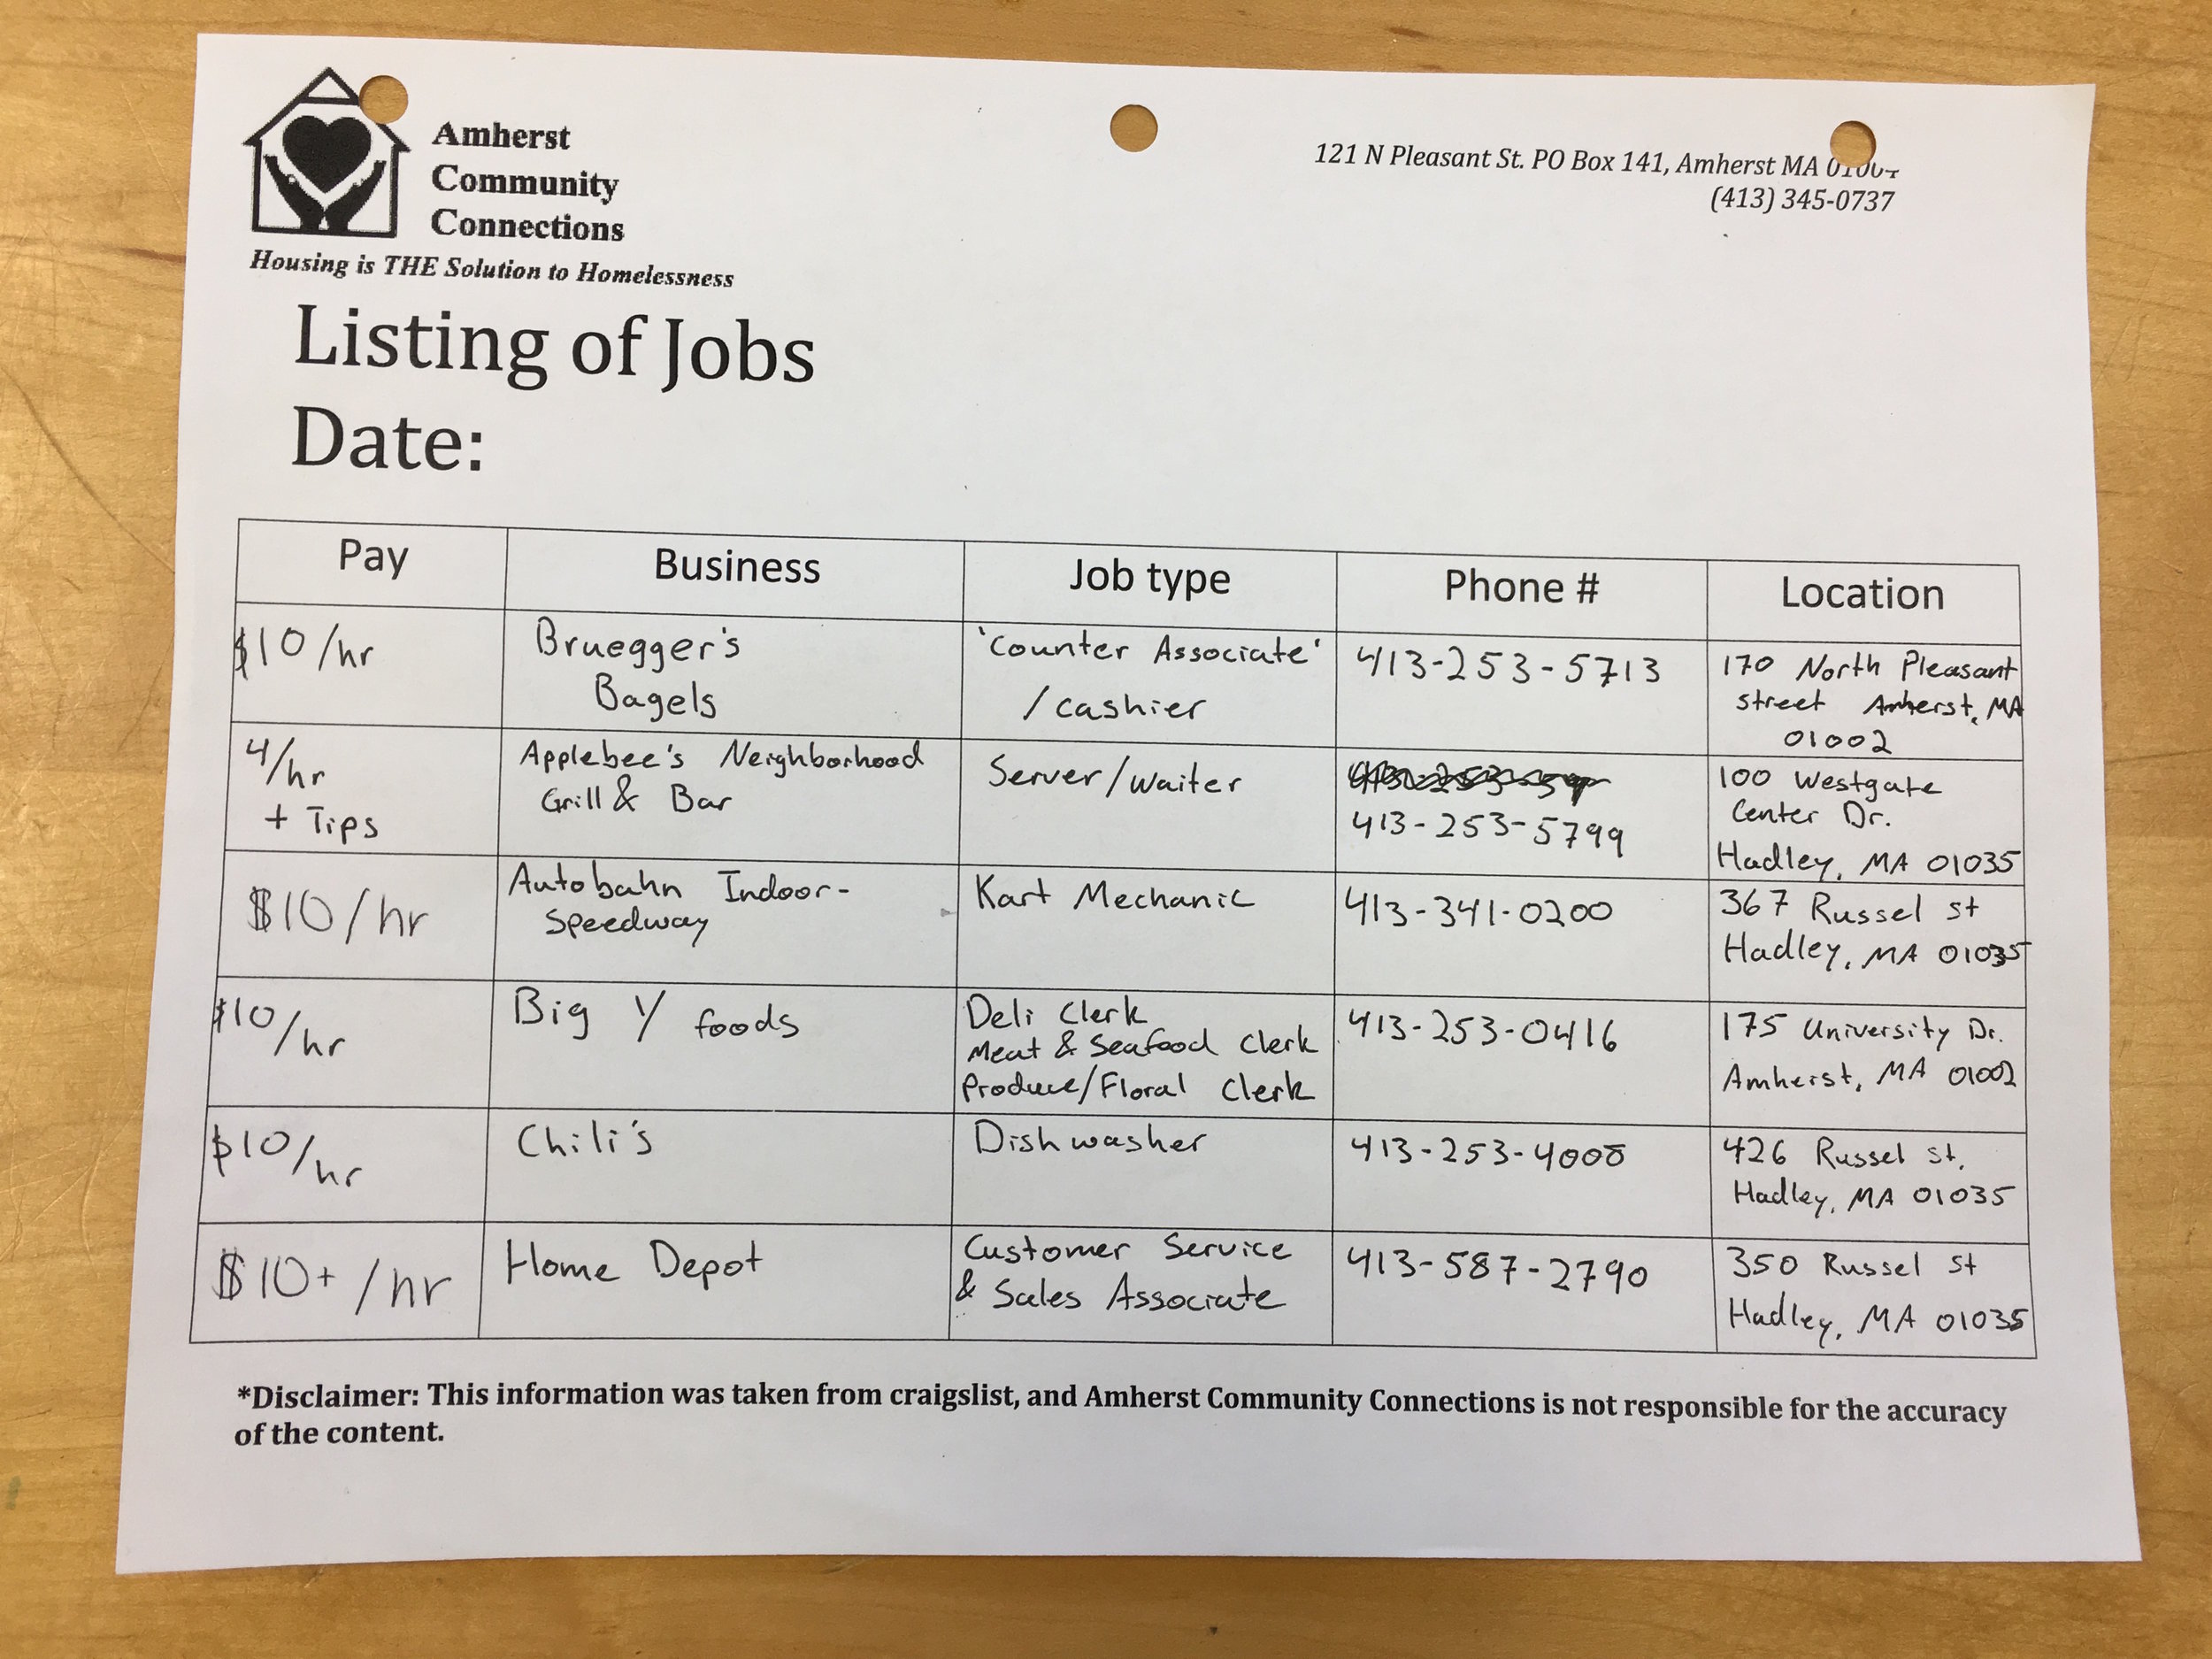 Amherst
Community
Connections
Housing is THE Solution to Homelessness
121 N Pleasant St. PO Box 141, Amherst MA 01004
(413) 345-0737
Listing of Jobs
Date:
Pay Business Job type Phone # Location
$10/hr
Bruegger's
Bagels
'Counter Associate'
/cashier
413-253-5713
170 North Pleasant
street Amherst, MA
01002
4/hr
+ Tips
Applebee's Neighborhood
Grill & Bar
Server/waiter
413-253-5799
100 Westgate
Center Dr.
Hadley, MA 01035
$10/hr
Autobahn Indoor-
Speedway
Kart Mechanic
413-341-0200
367 Russel st
Hadley, MA 01035
$10/hr
Big Y foods
Deli Clerk
Meat & Seafood Clerk
Produce/Floral Clerk
413-253-0416
175 University Dr.
Amherst, MA 01002
$10/hr
Chili's
Dishwasher
413-253-4008
426 Russel st,
Hadley, MA 01035
$10+/hr
Home Depot
Customer Service
& Sales Associate
413-587-2790
350 Russel st
Hadley, MA 01035
*Disclaimer: This information was taken from craigslist, and Amherst Community Connections is not responsible for the accuracy
of the content.